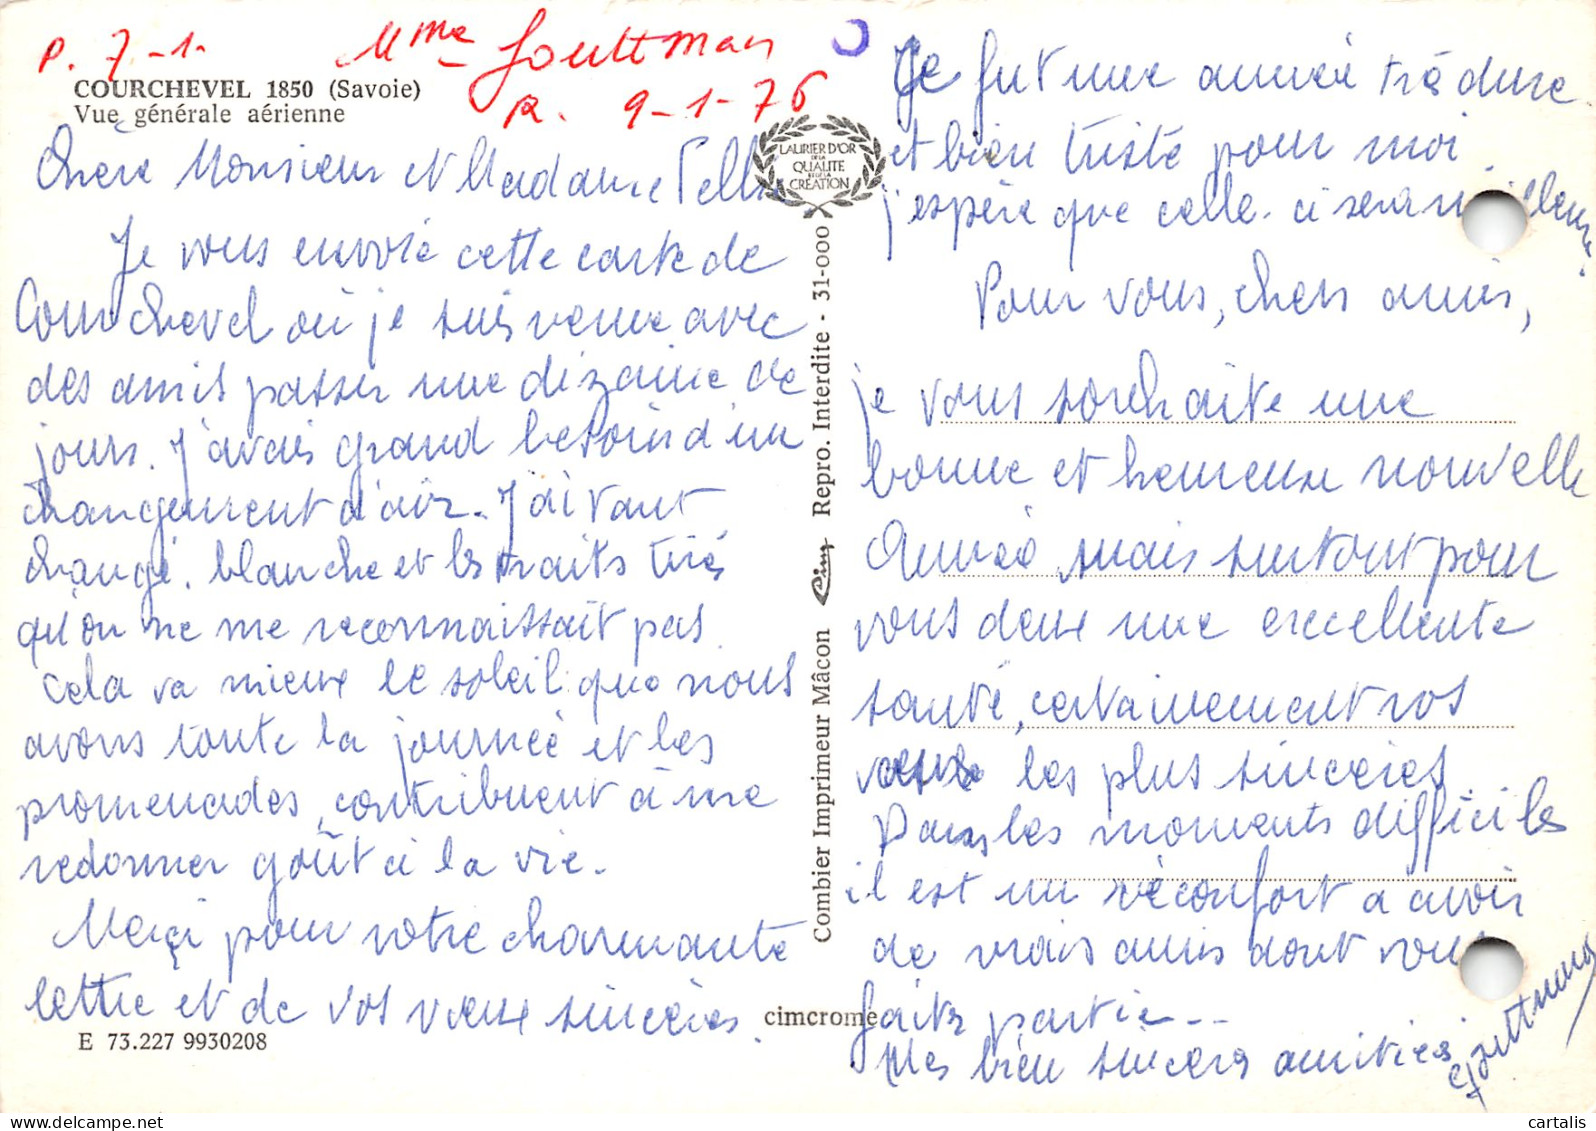 P. 7-1- Mme Gouttman
R. 9-1-76
COURCHEVEL 1850 (Savoie)
Vue générale aérienne
Chère Monsieur et Madame
Je vous envoie cette carte de
Courchevel où je suis venue avec
des amis passer une dizaine de
jours. J'avais grand besoin d'un
changement d'air. J'ai tant
changé. blanche et les traits tirés
qu'on ne me reconnaissait pas
cela va mieux le soleil que nous
avons toute la journée et les
promenades, contribuent à me
redonner goût à la vie.
Merçi pour votre charmante
lettre et de vos vœux sincères.
E 73.227 9930208
LAURIER D'OR
DE LA
QUALITÉ
ET DE LA
CRÉATION
Combier Imprimeur Mâcon Cim Repro. Interdite - 31-000
cimcrome
Ce fut une année très dure
et bien triste pour moi.
j'espère que celle-ci sera meilleure.
Pour vous, chers amis,
je vous souhaite une
bonne et heureuse nouvelle
Année mais surtout pour
vous deux une excellente
santé, certainement vos
vœux les plus sincères.
Dans les moments difficiles
il est un réconfort à avoir
de vrais amis dont vous
faites partie--
Mes bien sincères amitiés.
Gouttman
cartalis
www.delcampe.net